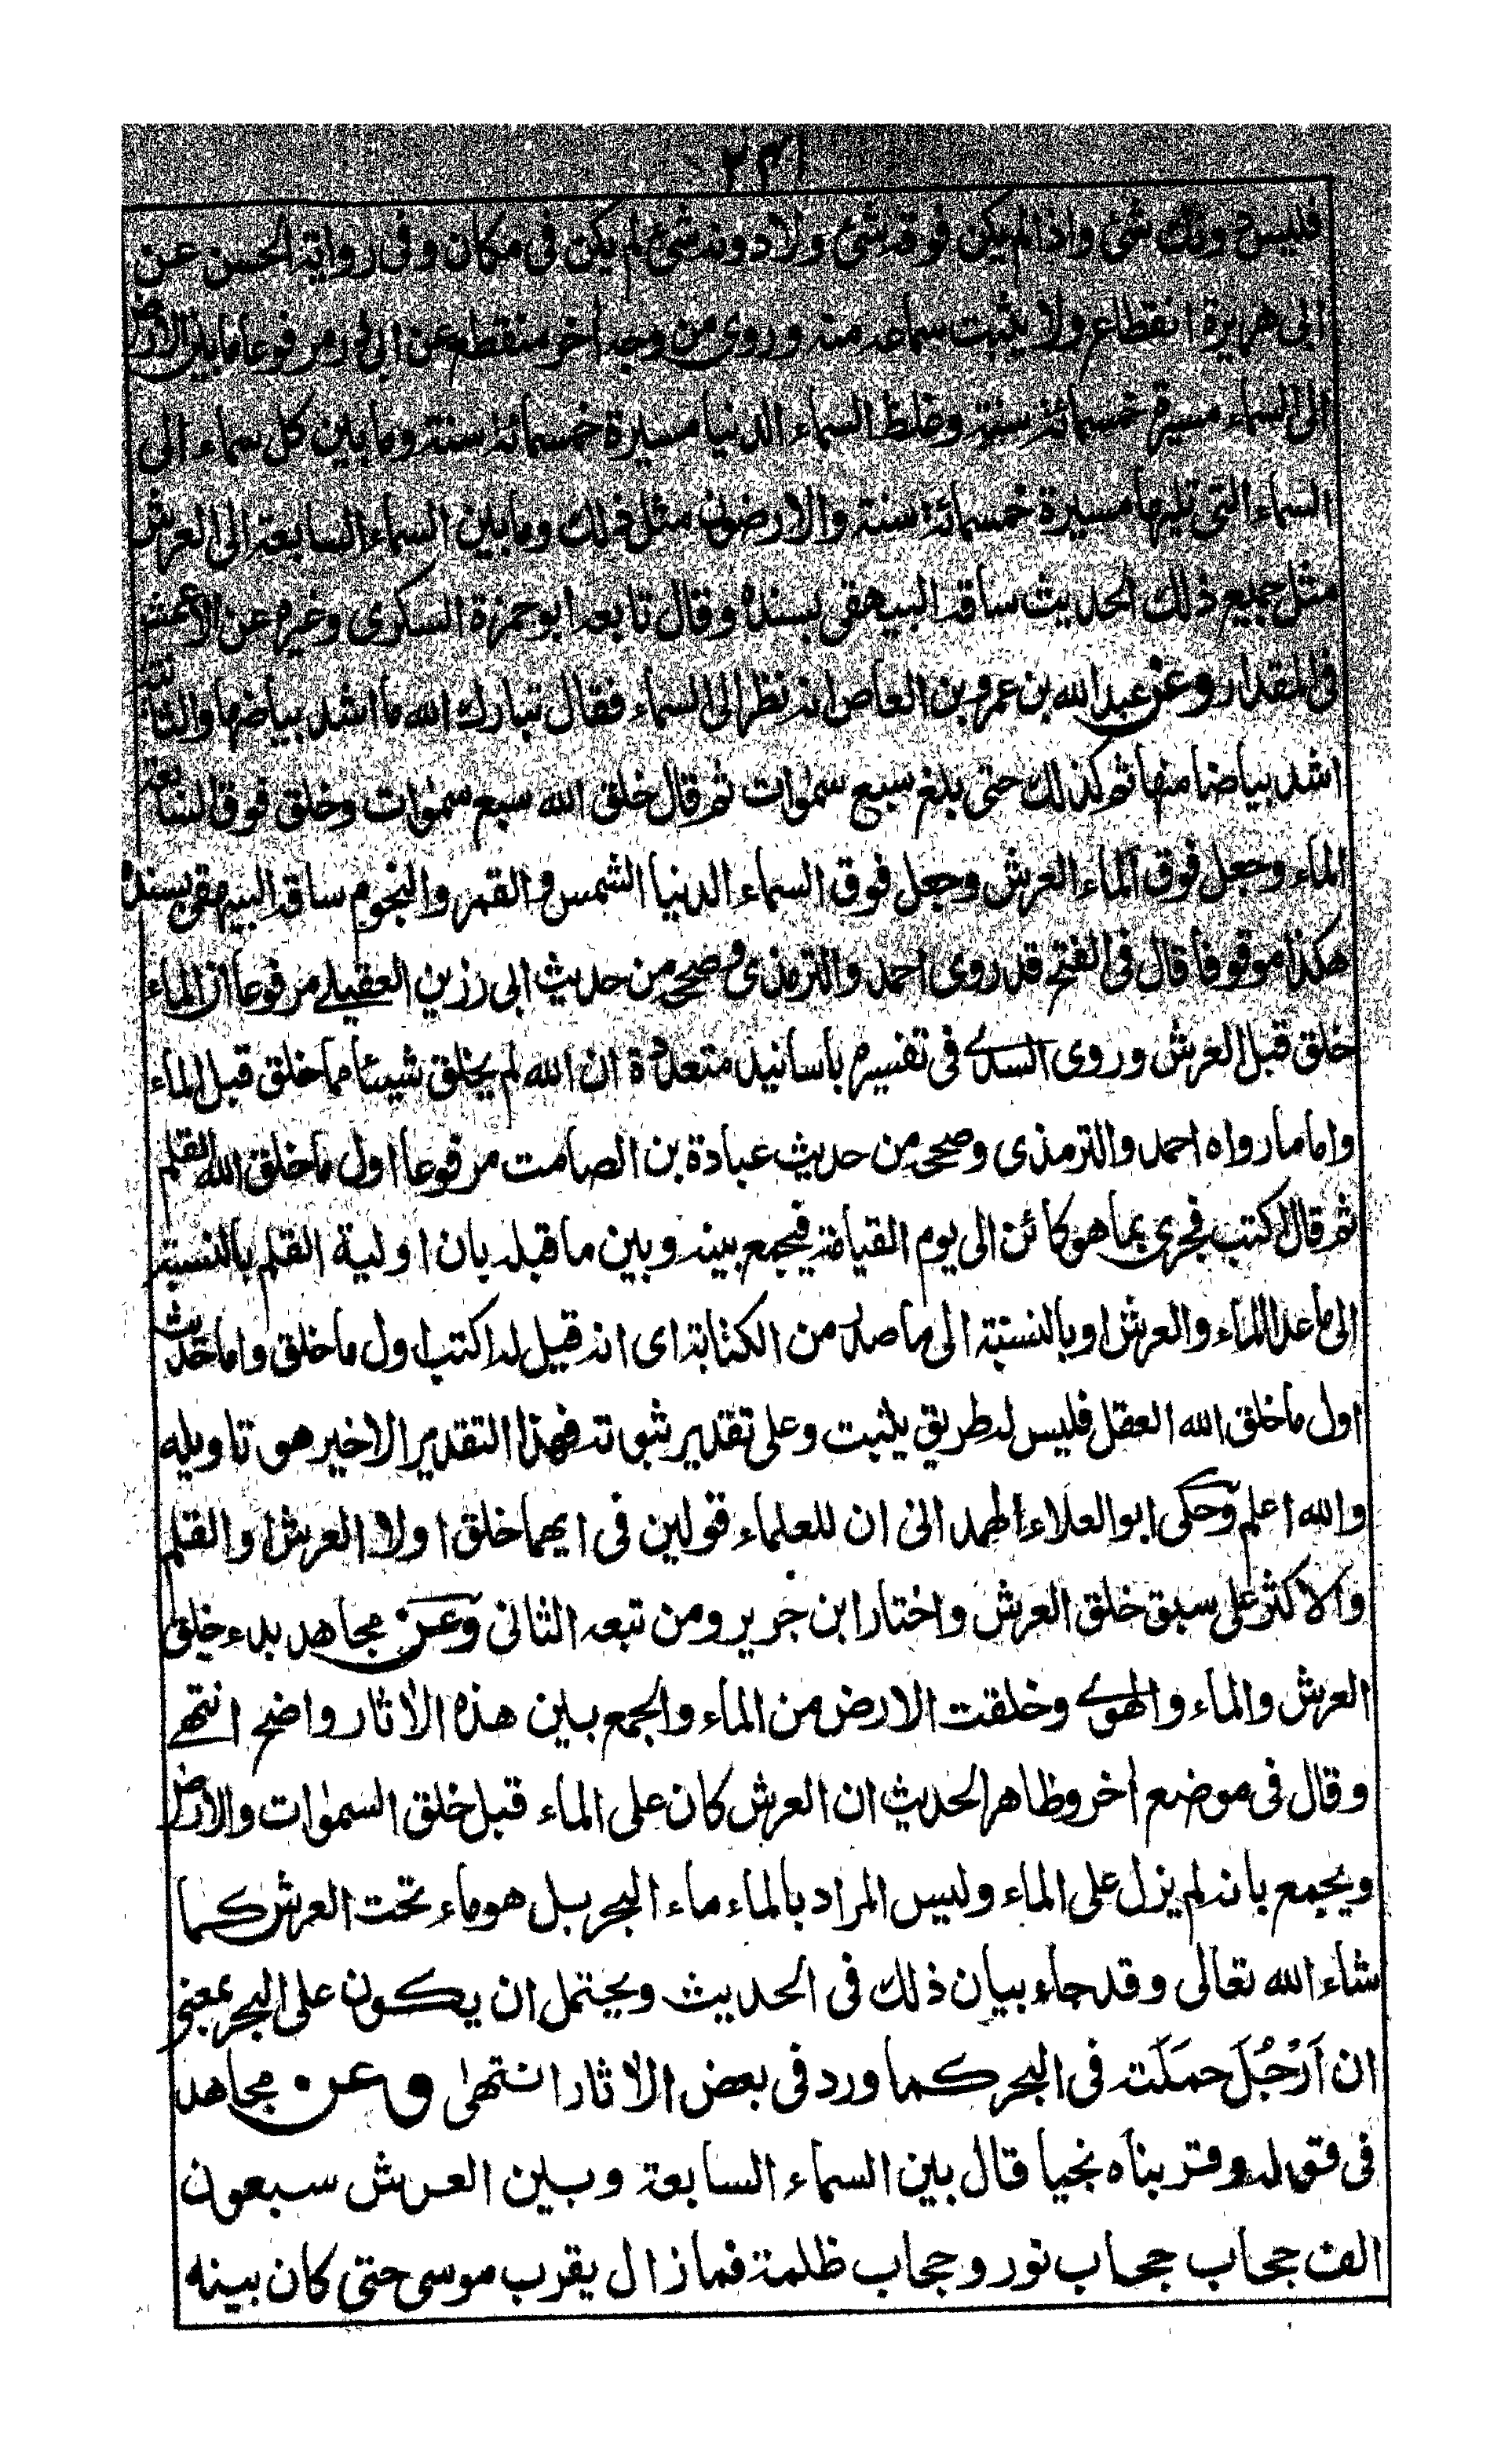 ٢٣١
فليس دونك شئ واذا لم يكن فوقه شئ ولا دونه شئ لم يكن فى مكان وفى رواية الحسن عن
ابى هريرة انقطاع ولا يثبت سماعه منه وروى من وجه اخر منقطع عن ابى ذر مرفوعا ما بين الارض
الى السماء مسيرة خمسمائة سنة وغلظ السماء الدنيا مسيرة خمسمائة سنة وما بين كل سماء الى
السماء التى تليها مسيرة خمسمائة سنة والارضون مثل ذلك وما بين السماء السابعة الى العرش
مثل جميع ذلك الحديث ساقه البيهقى بسنده وقال تابعه ابو حمزة السكرى وغيره عن الاعمش
فى المقدار وعن عبد الله بن عمرو بن العاص انه نظر الى السماء فقال تبارك الله ما اشد بياضها والثانية
اشد بياضا منها ثم كذلك حتى بلغ سبع سموات ثم قال خلق الله سبع سموات وخلق فوق السابعة
الماء وجعل فوق الماء العرش وجعل فوق السماء الدنيا الشمس والقمر والنجوم ساقه البيهقى بسنده
هكذا موقوفا قال فى الفتح قد روى احمد والترمذى وصححه من حديث ابى رزين العقيلے مرفوعا ان الماء
خلق قبل العرش وروى السدے فى تفسيره بأسانيد متعددة ان الله لم يخلق شيئا مما خلق قبل الماء
واما ما رواه احمد والترمذى وصححه من حديث عبادة بن الصامت مرفوعا اول ما خلق الله القلم
ثم قال اكتب فجرى بما هو كائن الى يوم القيامة فيجمع بينه وبين ما قبله بان اولية القلم بالنسبة
الى ما عدا الماء والعرش او بالنسبة الى ما صدر من الكتابة اى انه قيل له اكتب اول ما خلق واما حديث
اول ما خلق الله العقل فليس له طريق يثبت وعلى تقدير ثبوته فهذا التقدير الاخير هو تاويله
والله اعلم وحكى ابو العلاء الهمدانى ان للعلماء قولين فى ايهما خلق اولا العرش او القلم
والاكثر على سبق خلق العرش واختار ابن جرير ومن تبعه الثانى وعن مجاهد بدء خلق
العرش والماء والهوے وخلقت الارض من الماء والجمع بين هذه الاثار واضح انتهے
وقال فى موضع اخر وظاهر الحديث ان العرش كان على الماء قبل خلق السموات والارض
ويجمع بانه لم يزل على الماء وليس المراد بالماء ماء البحر بل هو ماء تحت العرش كما
شاء الله تعالى وقد جاء بيان ذلك فى الحديث ويحتمل ان يكون على البحر بمعنى
ان اَرْجُلَ حمَلَته فى البحر كما ورد فى بعض الاثار انتهى وعن مجاهد
فى قوله وقربناه نجيا قال بين السماء السابعة وبين العرش سبعون
الف حجاب حجاب نور وحجاب ظلمة فما زال يقرب موسى حتى كان بينه